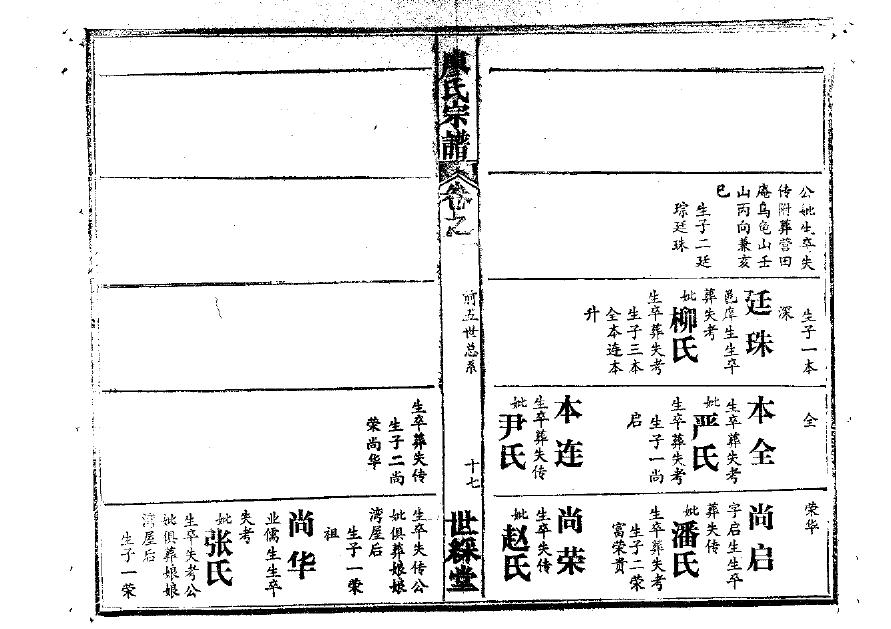 公妣生卒失
传附葬营田
庵乌龟山壬
山丙向兼亥
巳
生子二廷
琮廷珠
生子一本
深
廷珠
邑庠生生卒
葬失考
妣柳氏
生卒葬失考
生子三本
全本连本
升
全
本全
生卒葬失考
妣严氏
生卒葬失考
生子一尚
启
本连
生卒葬失传
妣尹氏
荣华
尚启
字启生生卒
葬失传
妣潘氏
生卒葬失考
生子二荣
富荣贵
尚荣
生卒失传
妣赵氏
廖氏宗譜
卷之
前五世总系
十七
世綵堂
生卒葬失传
生子二尚
荣尚华
生卒失传公
妣俱葬娘娘
湾屋后
生子一荣
祖
尚华
业儒生生卒
失考
妣张氏
生卒失考公
妣俱葬娘娘
湾屋后
生子一荣